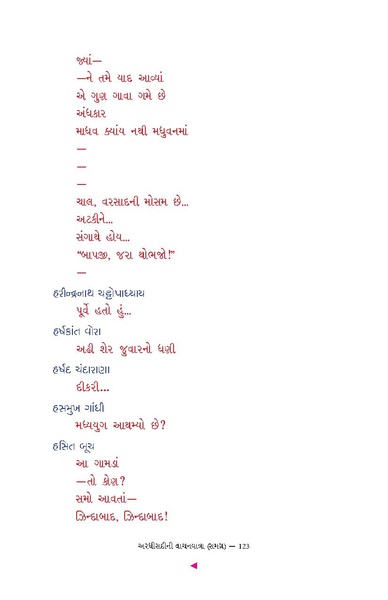 જ્યાં—
—ને તમે યાદ આવ્યાં
એ ગુણ ગાવા ગમે છે
અંધકાર
માધવ ક્યાંય નથી મધુવનમાં
—
—
—
ચાલ, વરસાદની મોસમ છે...
અટકીને...
સંગાથે હોય...
“બાપજી, જરા થોભજો!”
—
હરીન્દ્રનાથ ચટ્ટોપાધ્યાય
પૂર્વે હતો હું...
હર્ષકાંત વોરા
અઢી શેર જુવારનો ધણી
હર્ષદ ચંદારાણા
દીકરી...
હસમુખ ગાંધી
મધ્યયુગ આથમ્યો છે?
હસિત બૂચ
આ ગામડાં
—તો કોણ?
સમો આવતાં—
ઝિન્દાબાદ, ઝિન્દાબાદ!
અરધીસદીની વાચનયાત્રા (સમગ્ર) — 123